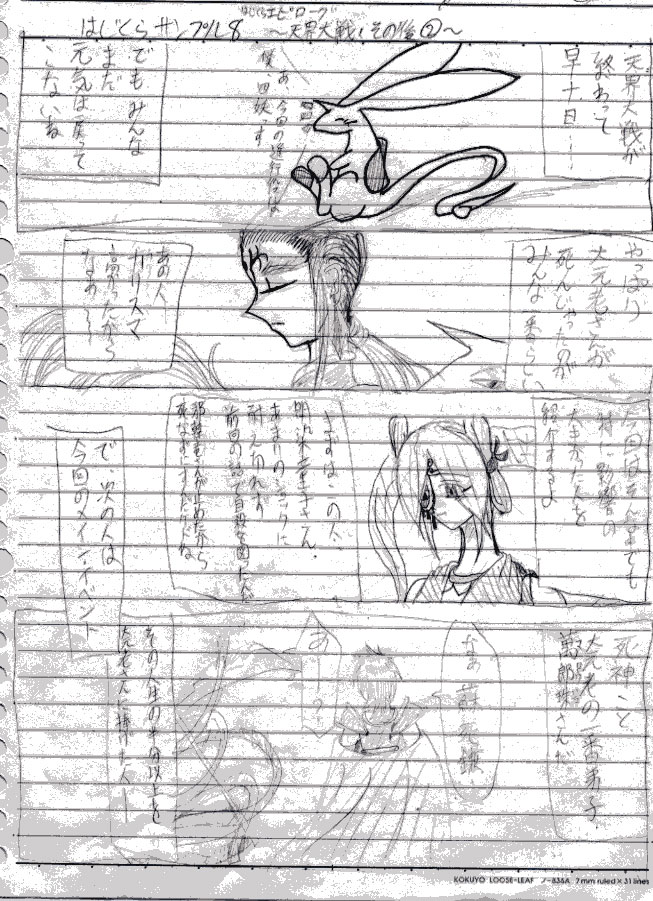 はじくらエピローグ
はじくらサンプル8 〜天界大戦、その後②〜
天界大戦が
終わって
早十日……
あ、今回の進行役は
僕、四妖です
でもみんな
まだ
元気は戻って
こないね
やっぱり
大元老さんが
死んじゃったのが
みんな一番らしい
あの人
カリスマ
高かったから
なぁ〜〜
今回はその中でも
特に影響の
大きかった人を
紹介するよ
まずはこの人、
さん、
あまりのショックに
耐え切れず
前回の話で自殺を図った人
で、次の人は
今回のメイン・イベント
死神こと
大元老の一番弟子、
さんだ
なぁ
あ…?
その人生の半分以上を
大元老さんに捧げた人
KOKUYO LOOSE-LEAF ノ-836A 7mm ruled × 31 lines